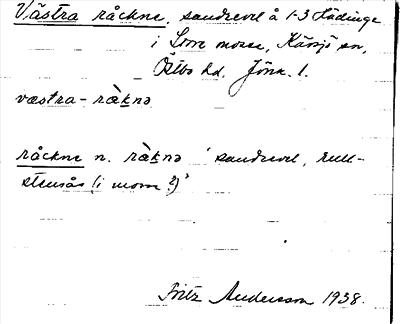 Västra råckne, sandrevel å 1-3 Hädinge
i Store mosse, Kärsjö sn,
Östbo hd. Jönk. l.
væstra-rȧ̀knə
råckne n. rȧ̀knə 'sandrevel, rull-
stensås (i mosse?)'
Fritz Andersson 1938.